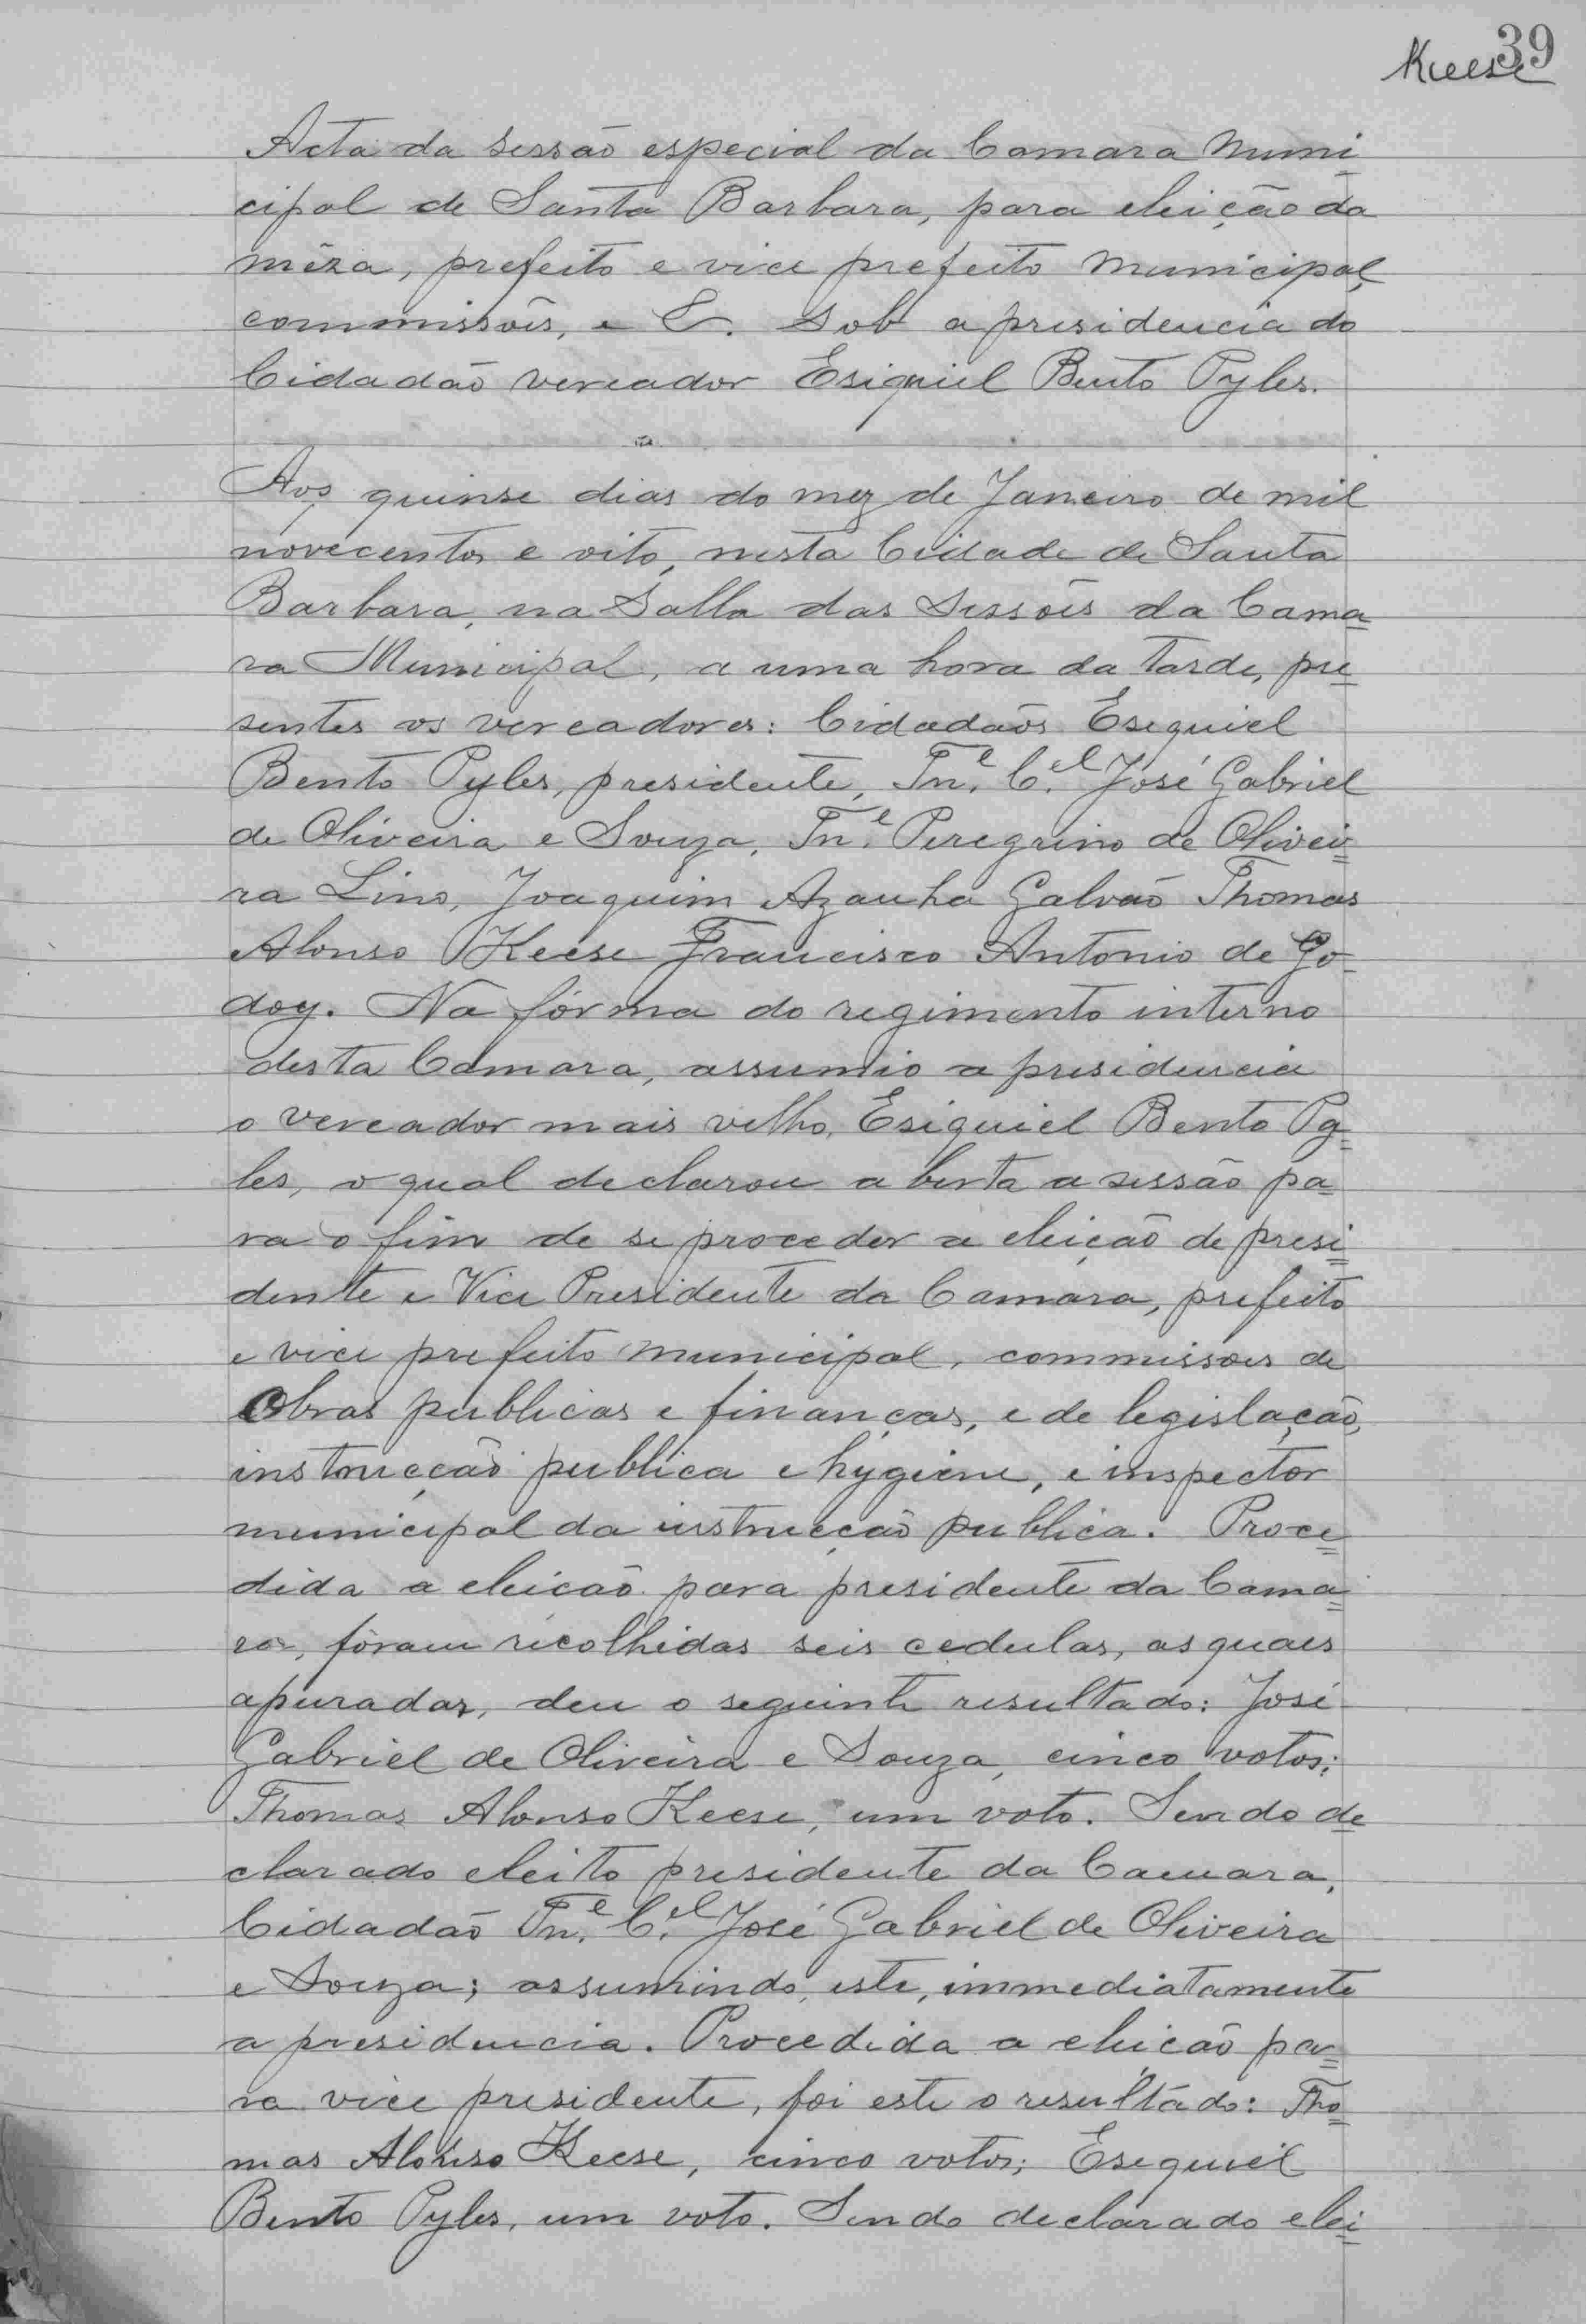 39
Keese
Acta da sessão especial da Camara Muni
cipal de Santa Barbara, para eleição da
mêza, prefeito e vice prefeito municipal,
commissões, e &. Sob a presidencia do
Cidadão vereador Esiquiel Bento Pyles.
Aos quinse dias do mez de Janeiro de mil
novecentos e oito, nesta Cidade de Santa
Barbara, na Salla das Sessões da Cama
ra Municipal, a uma hora da tarde, pre
sentes os vereadores: Cidadãos Esequiel
Bento Pyles, presidente, Tn.e C.el José Gabriel
de Oliveira e Souza, Tn.e Peregrino de Olivei
ra Lino, Joaquim Azanha Galvão Thomas
Alonso Keese Francisco Antonio de Go
doy. Na fórma do regimento interno
desta Camara, assumio a presidencia
o vereador mais velho, Esiquiel Bento Py
les, o qual declarou aberta a sessão pa
ra o fim de se proceder a eleição de presi
dente e Vice Presidente da Camara, prefeito
e vice prefeito municipal, commissões de
Obras publicas e finanças, e de legislação,
instrucção publica e hygiene, e inspector
municipal da instrucção publica. Proce
dida a eleicão para presidente da Cama
ra, fôram recolhidas seis cedulas, as quaes
apuradas, deu o seguinte resultado: José
Gabriel de Oliveira e Souza, cinco votos;
Thomas Alonso Keese, um voto. Sendo de
clarado eleito presidente da Camara,
Cidadão Tn.e C.el José Gabriel de Oliveira
e Souza; assumindo, este, immediatamente
a presidencia. Procedida a eleicão pa
ra vice presidente, foi este o resultádo: Tho
mas Alonso Keese, cinco votos; Esequiel
Bento Pyles, um voto. Sendo declarado elei